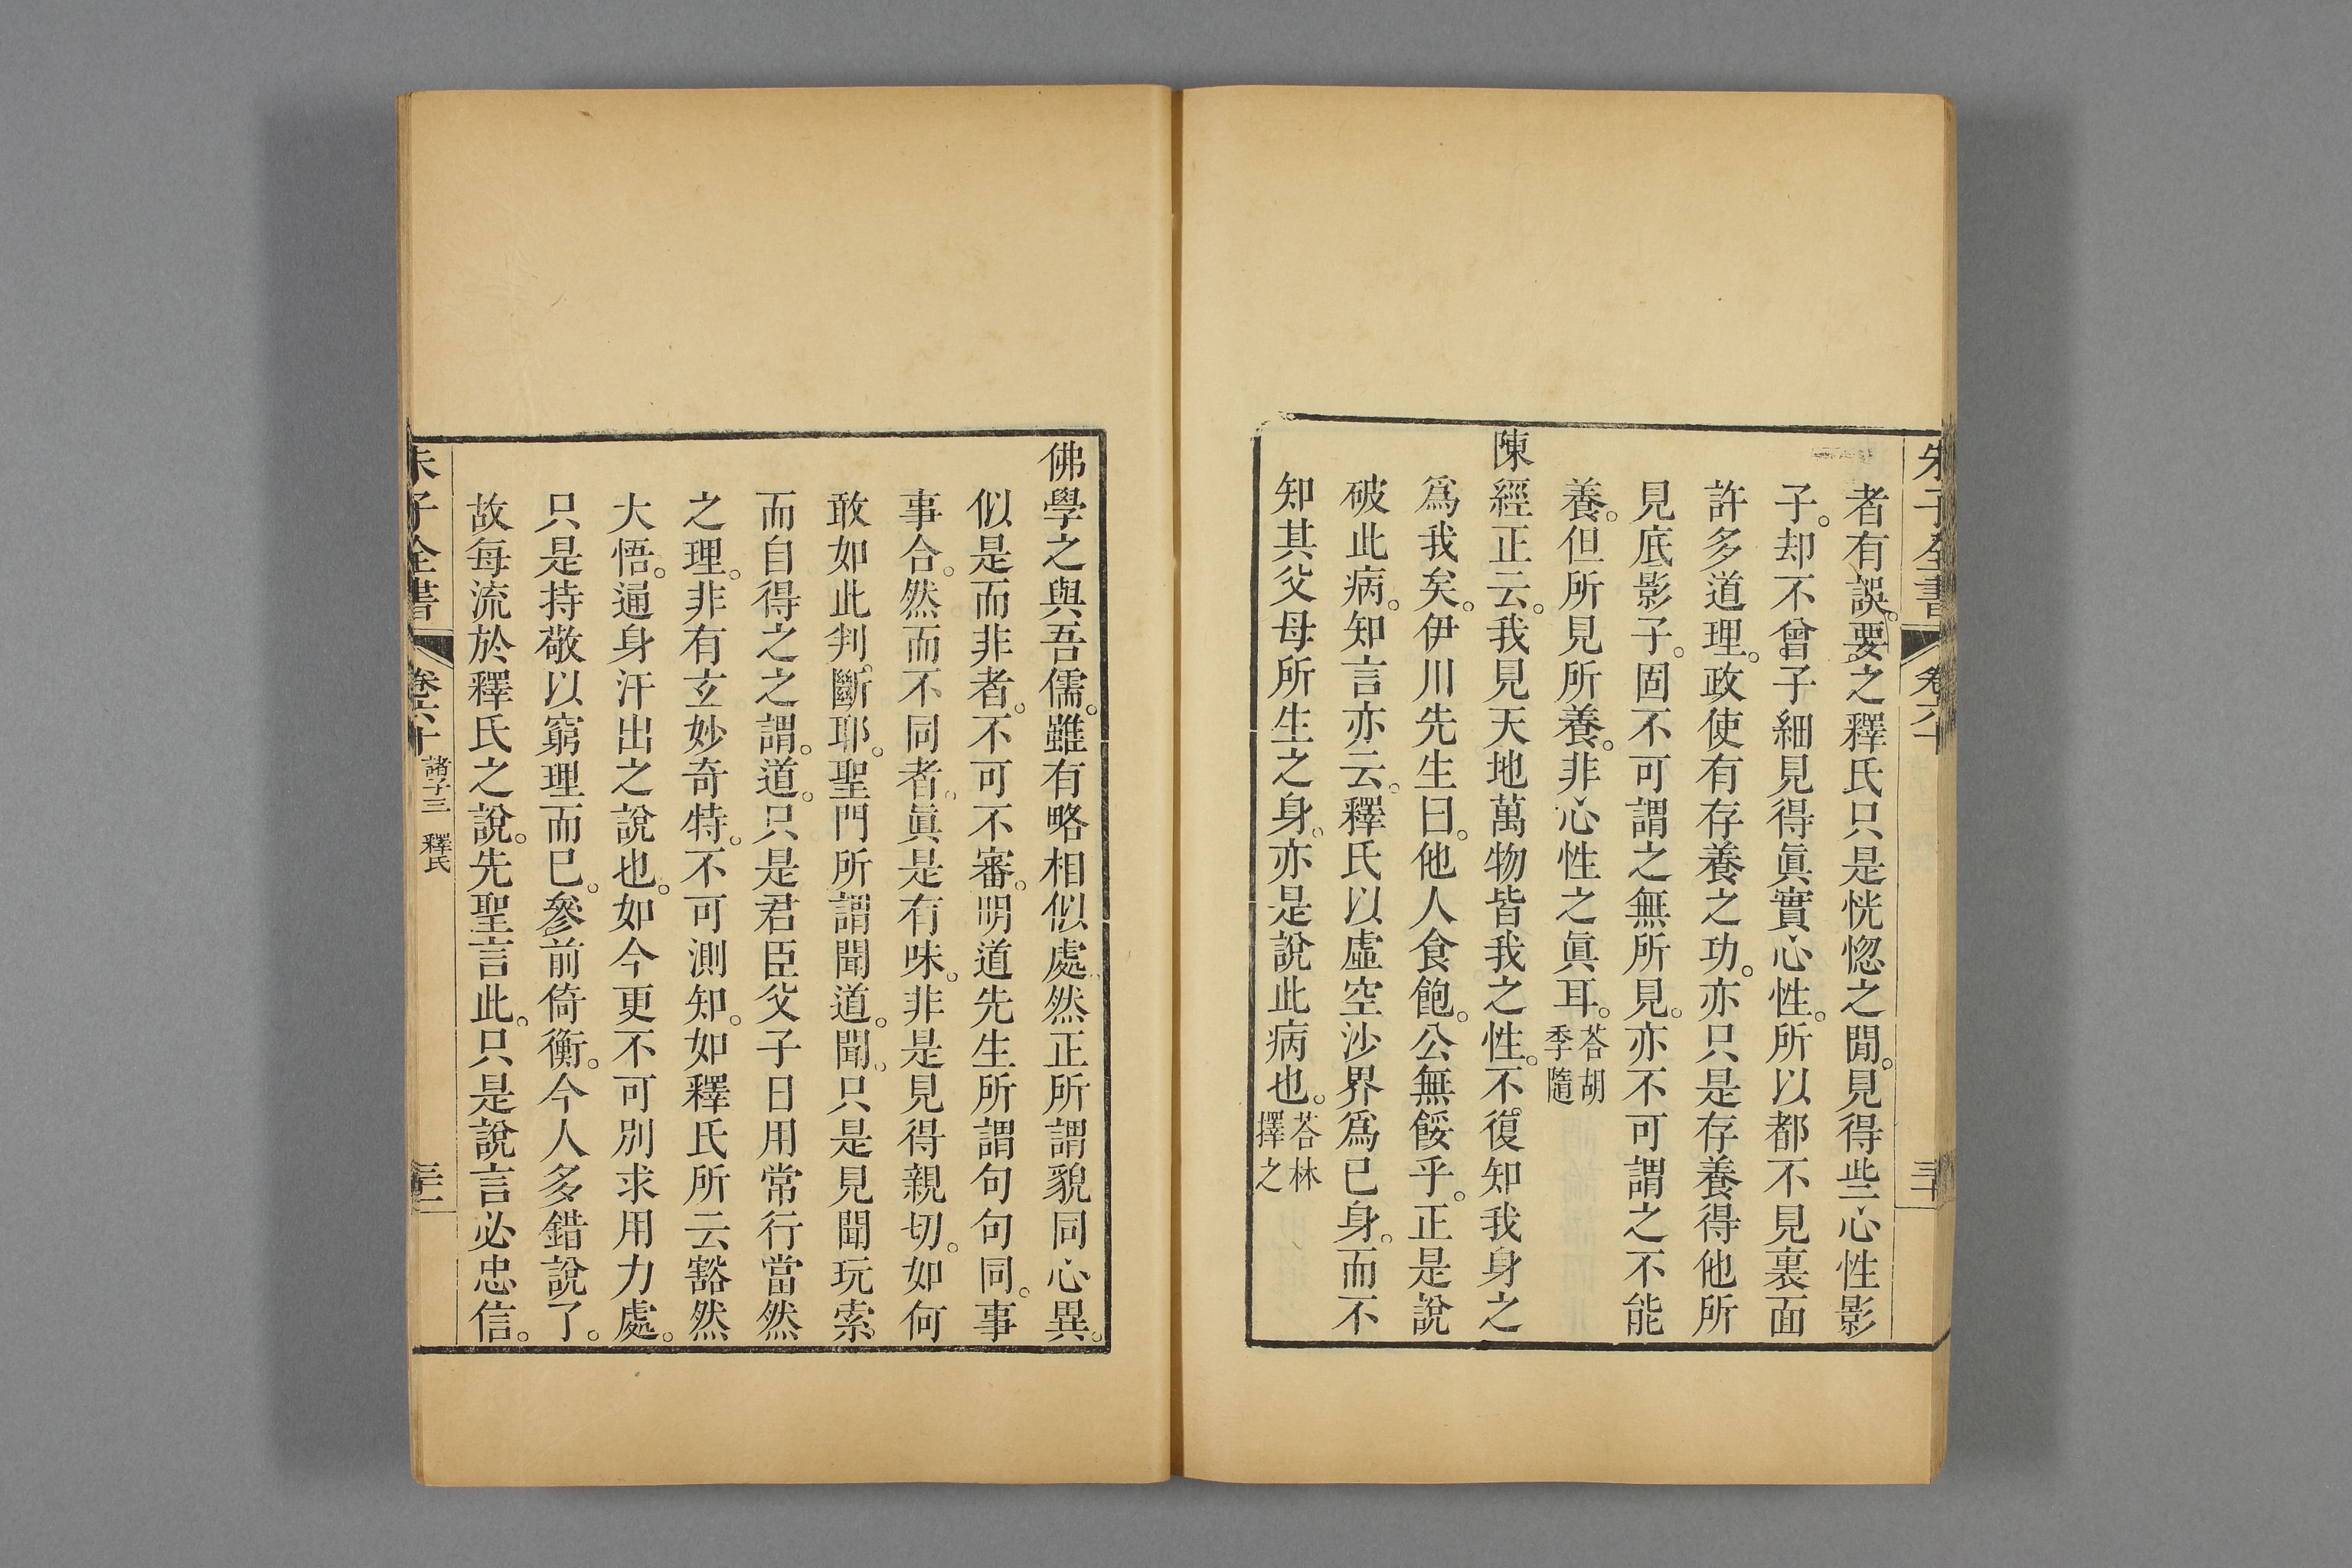 朱子全書 卷六十 三十
者有誤。要之釋氏只是恍惚之閒。見得些心性影
子。却不曾子細見得眞實心性。所以都不見裏面
許多道理。政使有存養之功。亦只是存養得他所
見底影子。固不可謂之無所見。亦不可謂之不能
養。但所見所養。非心性之眞耳。荅胡季隨
陳經正云。我見天地萬物皆我之性。不復知我身之
爲我矣。伊川先生曰。他人食飽。公無餒乎。正是說
破此病。知言亦云。釋氏以虛空沙界爲已身。而不
知其父母所生之身。亦是說此病也。荅林擇之
佛學之與吾儒。雖有略相似處。然正所謂貌同心異。
似是而非者。不可不審。明道先生所謂句句同。事
事合。然而不同者。眞是有味。非是見得親切。如何
敢如此判斷耶。聖門所謂聞道。聞。只是見聞玩索。
而自得之之謂。道。只是君臣父子日用常行當然
之理。非有玄妙奇特。不可測知。如釋氏所云豁然
大悟。通身汗出之說也。如今更不可別求用力處。
只是持敬以窮理而已。參前倚衡。今人多錯說了。
故每流於釋氏之說。先聖言此。只是說言必忠信。
朱子全書 卷六十 諸子三 釋氏 三十一